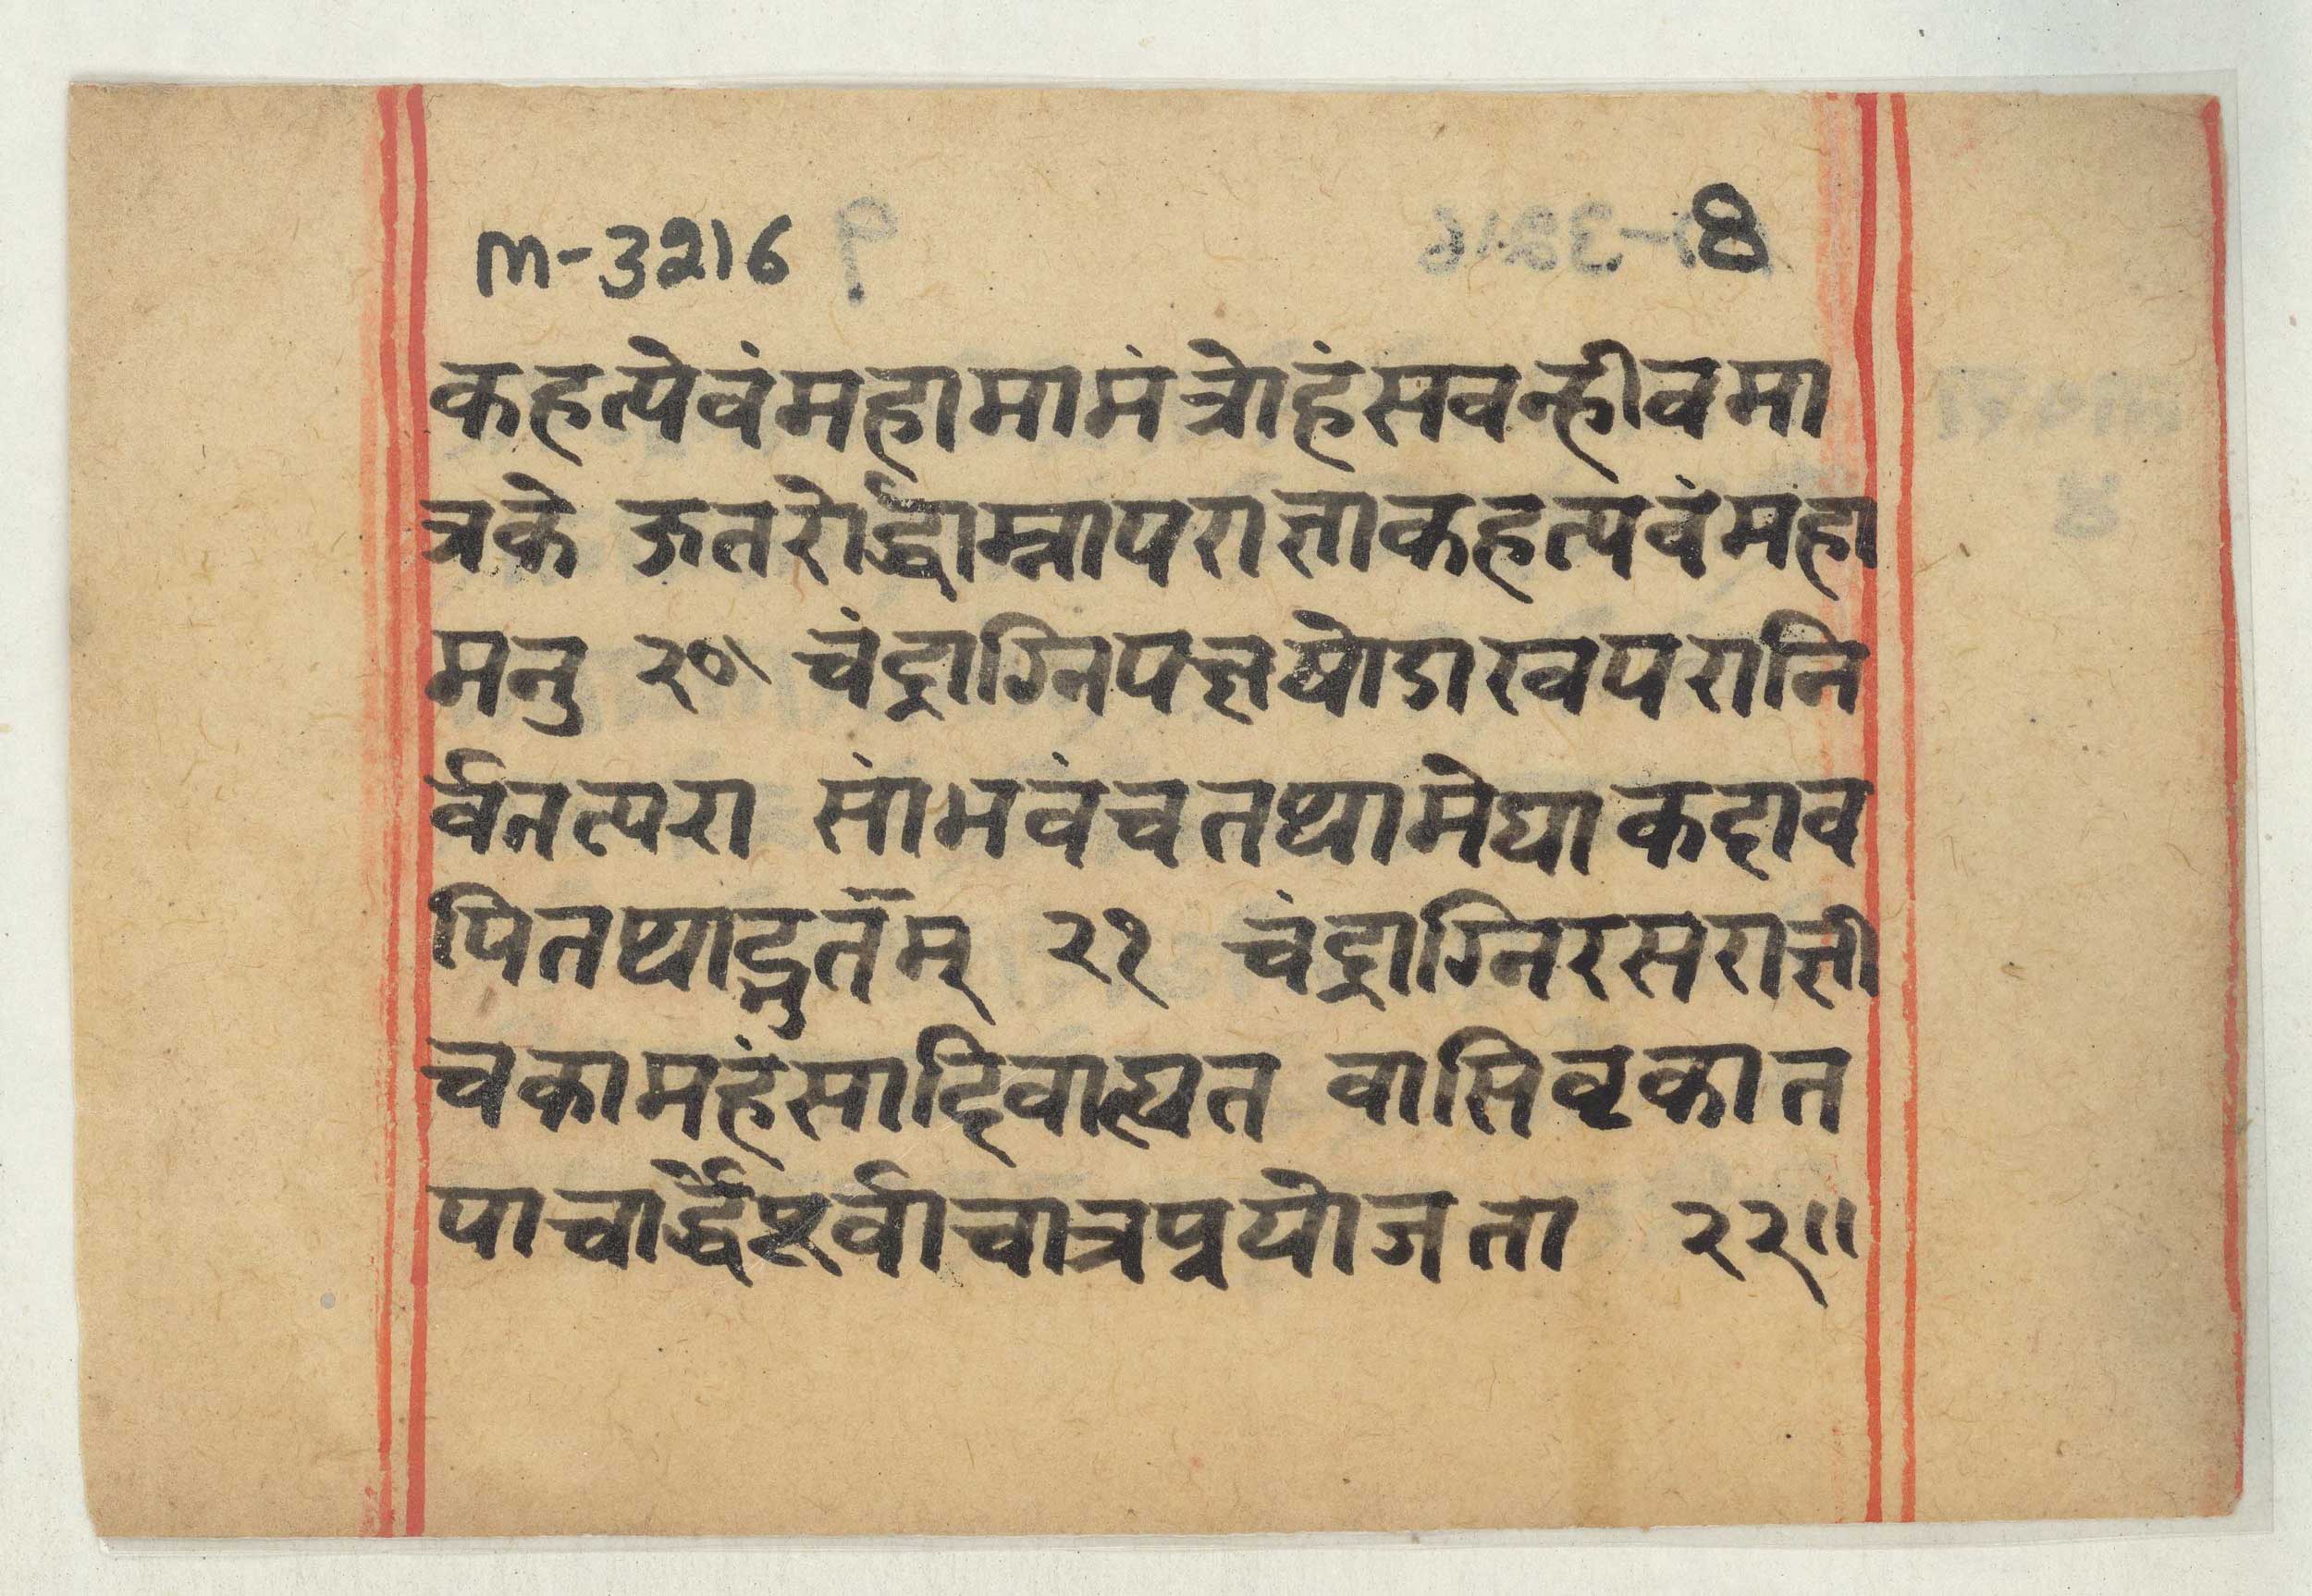 m-3216 8
कहत्येवंमहामामंत्रोहंसवन्हीवमा
त्रके ऊतरोर्द्धाम्नापरात्ताकहत्यवंमहा
मनु २० चंद्राग्निपज्ञषोडारवपरानि
र्वनत्परा सांभवंचतथामेद्याकहाव
पितथाद्भुतंम् २१ चंद्राग्निरसरात्ती
चकामहंसादिवाह्यत वासिवृकात
पाचार्द्धेष्टर्वाचात्रप्रयोजता २२॥